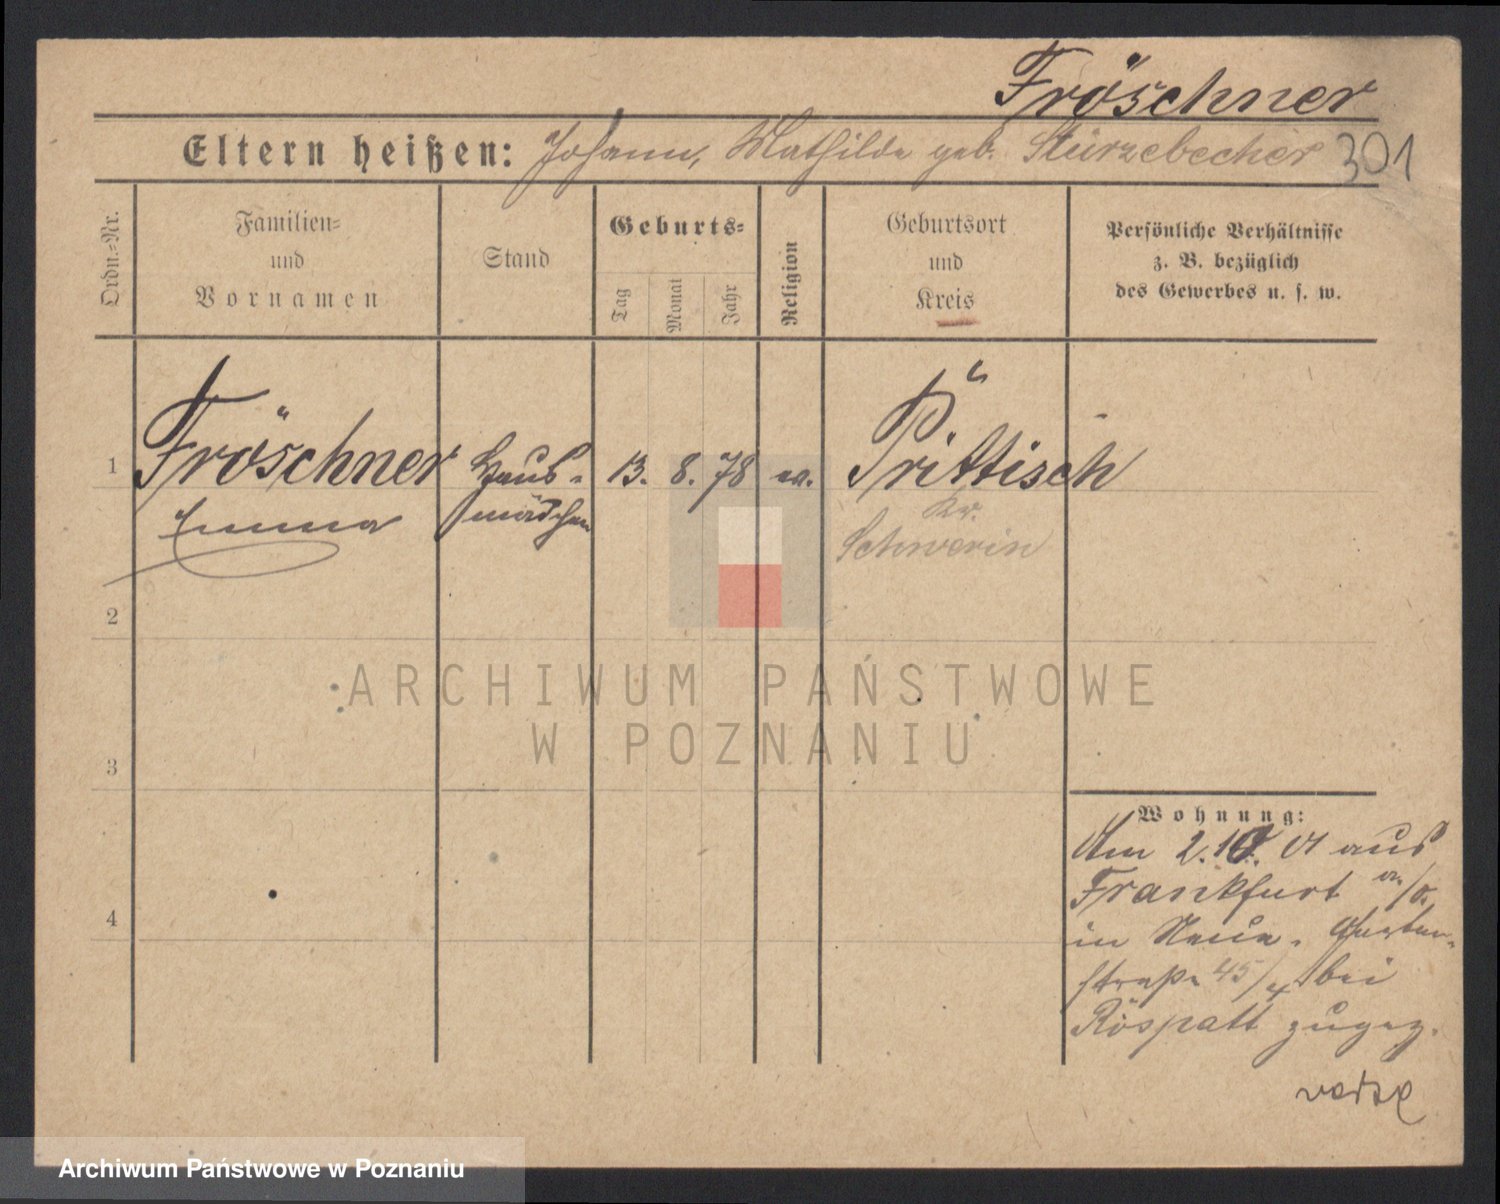 Fröschner
Eltern heißen: Johann, Mathilde geb. Stürzebecher 301
Ordn.=Nr.
Familien=
und
Vornamen
Stand
Geburts=
Tag
Monat
Jahr
Religion
Geburtsort
und
Kreis
Persönliche Verhältnisse
z. B. bezüglich
des Gewerbes u. s. w.
1 Fröschner Haus- 13. 8. 78 ev. Prittisch
Emma mädchen Kr.
Schwerin
2
3
4
Wohnung:
Am 2.10. 01 aus
Frankfurt a/O.
in Neue- Garten-
straße 45/ bei
Röspatt zugez.
ARCHIWUM PAŃSTWOWE
W POZNANIU
Archiwum Państwowe w Poznaniu